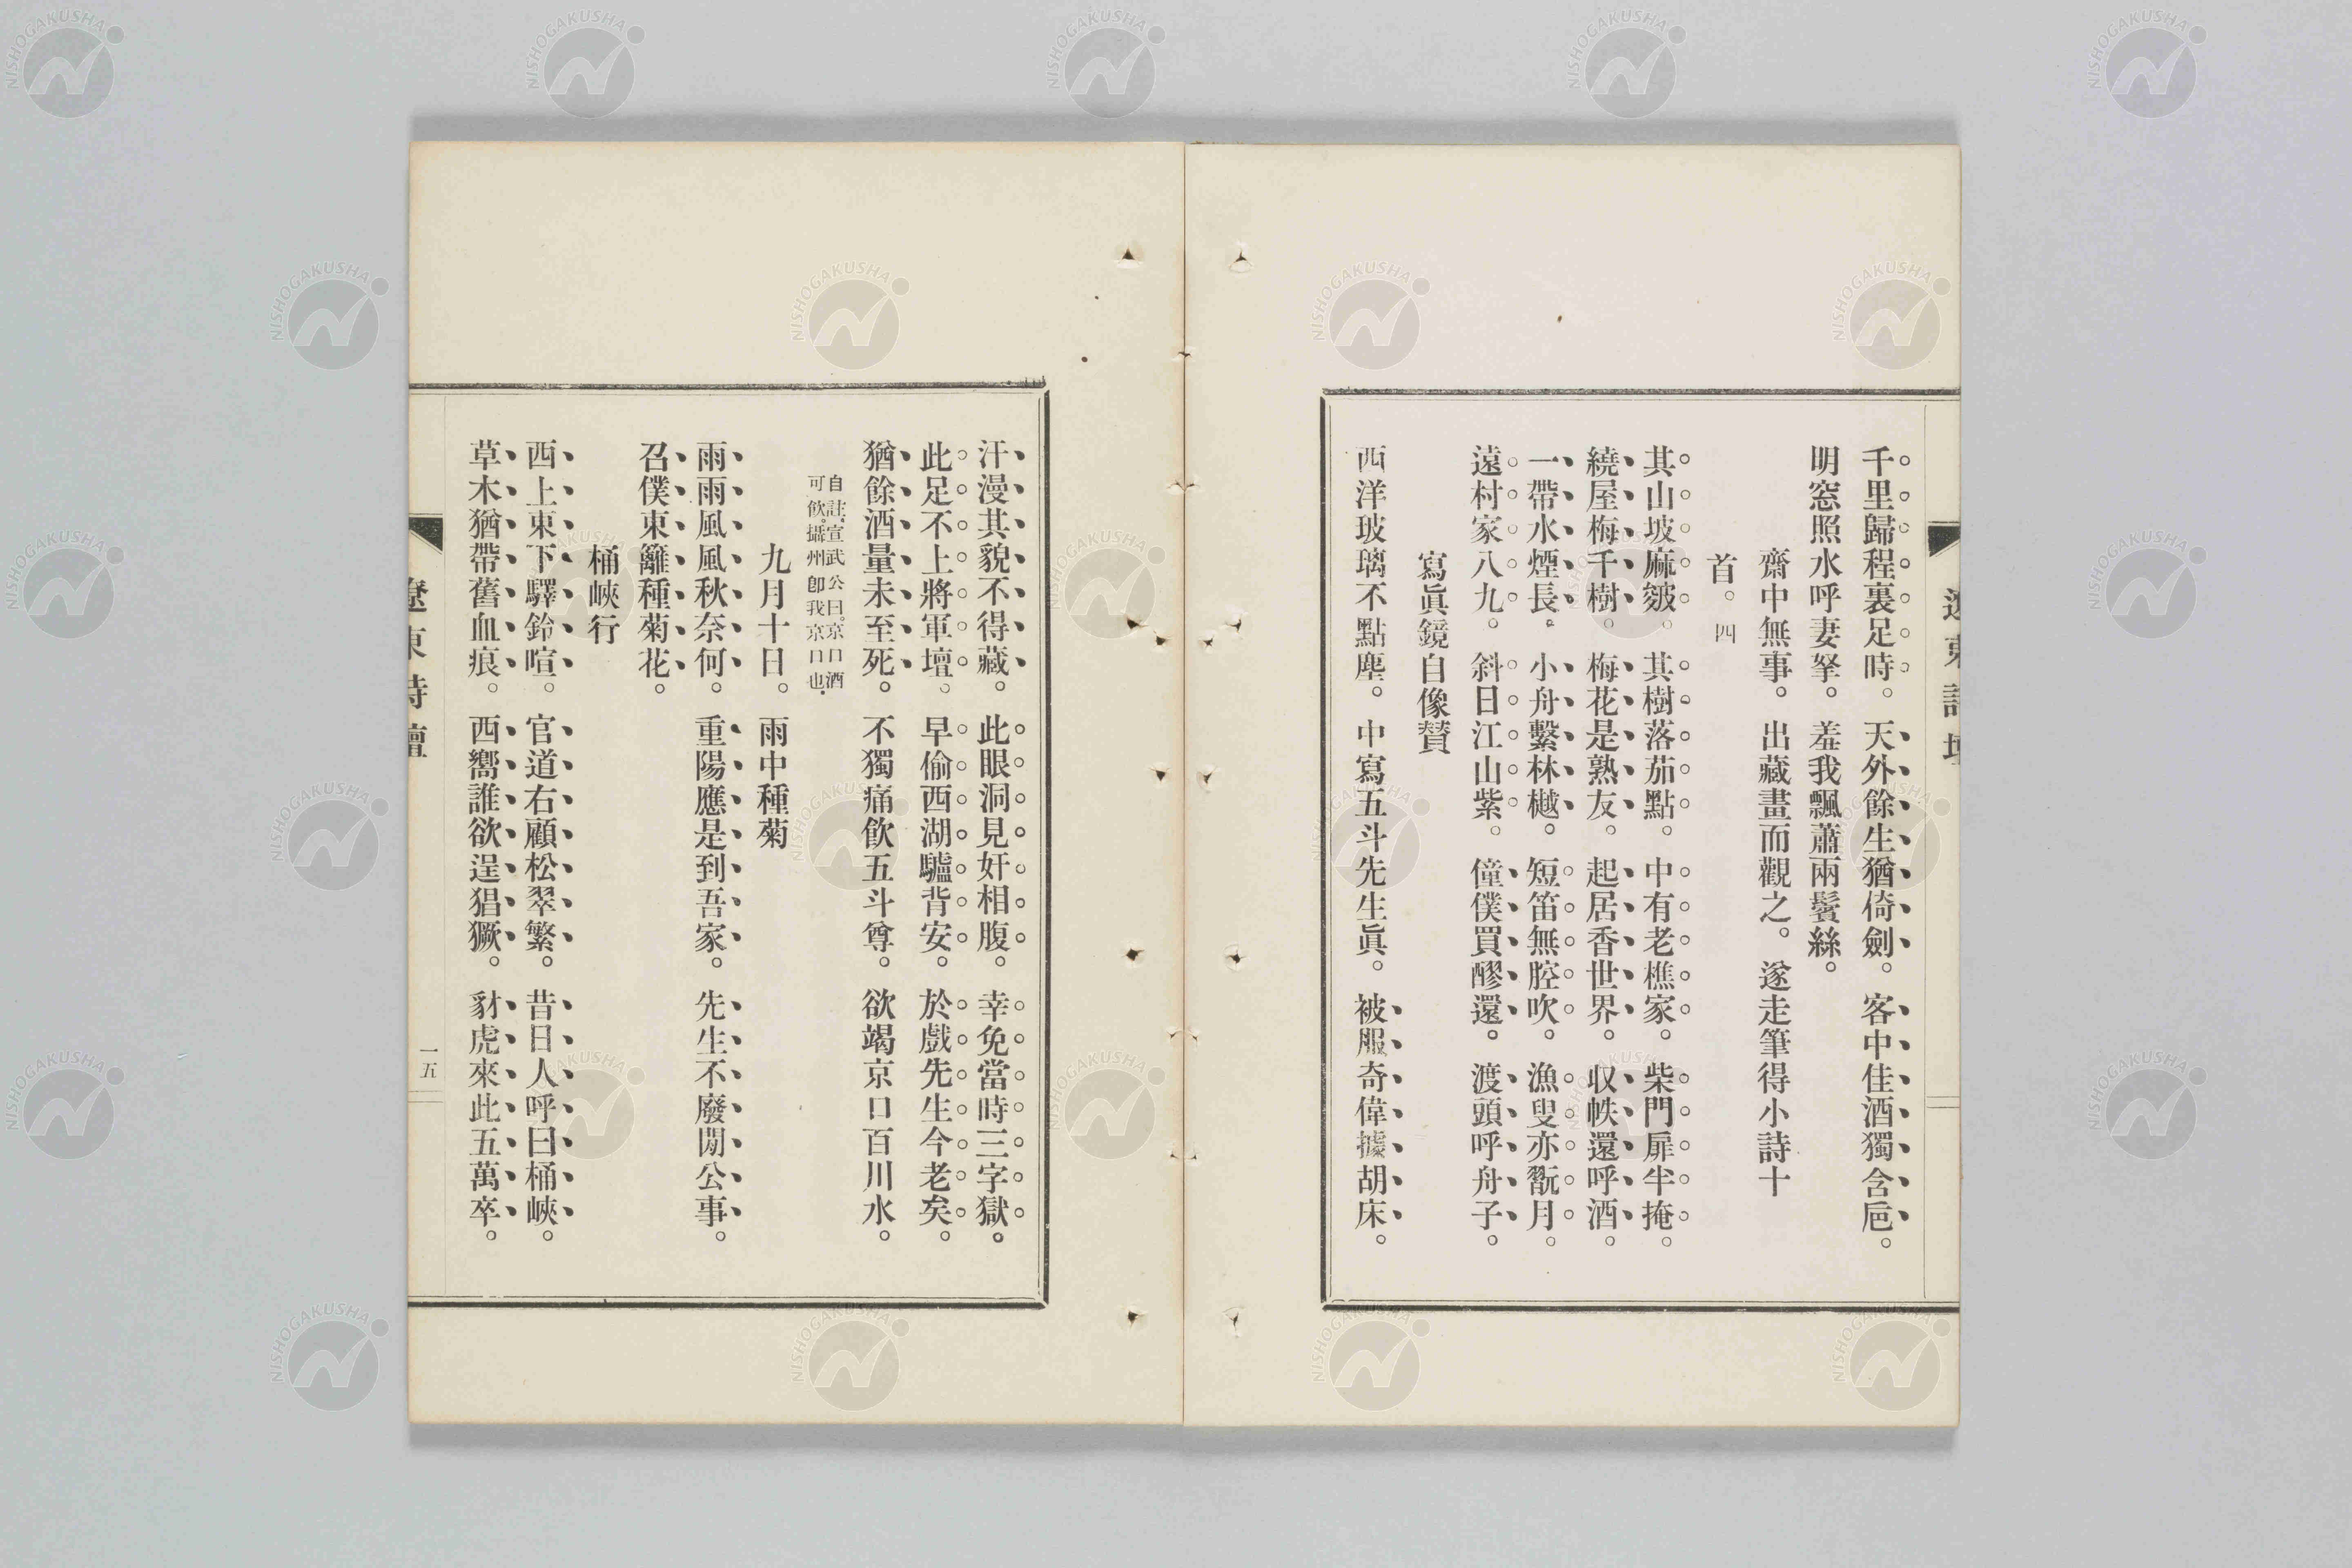 千里歸程裏足時。天外餘生猶倚劍。客中佳酒獨含巵。
明窓照水呼妻孥。羞我飄蕭兩鬢絲。
齋中無事。出藏畫而觀之。遂走筆得小詩十
首。四
其山坡麻皴。其樹落茄點。中有老樵家。柴門扉半掩。
繞屋梅千樹。梅花是熟友。起居香世界。収帙還呼酒。
一帶水煙長。小舟繫林樾。短笛無腔吹。漁叟亦翫月。
遠村家八九。斜日江山紫。僮僕買醪還。渡頭呼舟子。
寫眞鏡自像賛
西洋玻璃不點塵。中寫五斗先生眞。被服奇偉據胡床。
汗漫其貌不得藏。此眼洞見奸相腹。幸免當時三字獄。
此足不上將軍壇。早偷西湖驢背安。於戲先生今老矣。
猶餘酒量未至死。不獨痛飮五斗尊。欲竭京口百川水。
自註、宣武公曰。京口酒
可飮。攝州卽我京口也。
九月十日。雨中種菊
雨雨風風秋奈何。重陽應是到吾家。先生不廢閑公事。
召僕東籬種菊花。
桶峽行
西上東下驛鈴喧。官道右顧松翠繁。昔日人呼曰桶峽。
草木猶帶舊血痕。西嚮誰欲逞猖獗。豺虎來此五萬卒。
遼東詩壇
一五
NISHOGAKUSHA